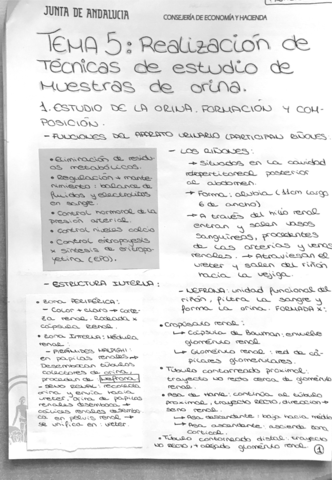 JUNTA DE ANDALUCIA
CONSEJERÍA DE ECONOMÍA Y HACIENDA
TEMA 5: Realización de
Técnicas de estudio de
Muestras de orina.
1. ESTUDIO DE LA ORINA. FORMACIÓN Y COM-
POSICIÓN.
- FUNCIONES DEL APARATO URINARIO (PARTICIPAN RIÑONES
• Eliminación de residu-
os metabólicos.
• Regulación + mante
nimiento: balance de
fluidos y electrolitos
en sangre.
• Control hormonal de la
presión arterial
• Control niveles calcio
• Control eritropoyesis
→ síntesis de eritropo
yetina (EPO).
- LOS RIÑONES:
→ Situados en la cavidad
retroperitoneal posterior
al abdomen.
→ Forma: ovoide (11cm largo
6 de ancho)
→ A través del hilio renal
entran y salen vasos
sanguíneos procedentes
de las arterias y venas
renales. → Atraviesan el
uréter y salen del riñón
hacia la vejiga.
- ESTRUCTURA INTERNA:
• Zona PERIFÉRICA:
- Color + claro → corte-
za renal. Rodeada x
cápsula renal
• Zona INTERNA: Médula
renal.
- PIRÁMIDES MALPIGHI:
en papilas renales →
Desembocan túbulos
colectores de orina,
proceden de nefrona
orina y envía
uréter. Orina de papilas
renales desemboca →
cálices renales
en pelvis renal →
se unifica en uréter
- NEFRONA: unidad funcional del
riñón, filtra la sangre y
forma la orina. FORMADA x:
• Corpúsculo renal:
↳ Cápsula de Bauman: envuelve
glomérulo renal
↳ Glomérulo renal: red de ca-
pilares glomerulares.
• Túbulo contorneado proximal:
trayecto no recto cerca de glomérulo
renal
• Asa de Henle: continúa al túbulo
proximal, trayecto recto, dirección →
seno renal.
↳ Asa descendente: baja hacia médula
↳ Asa ascendente: asciende zona
cortical
• Túbulo contorneado distal: trayecto
no recto, glomérulo renal
1